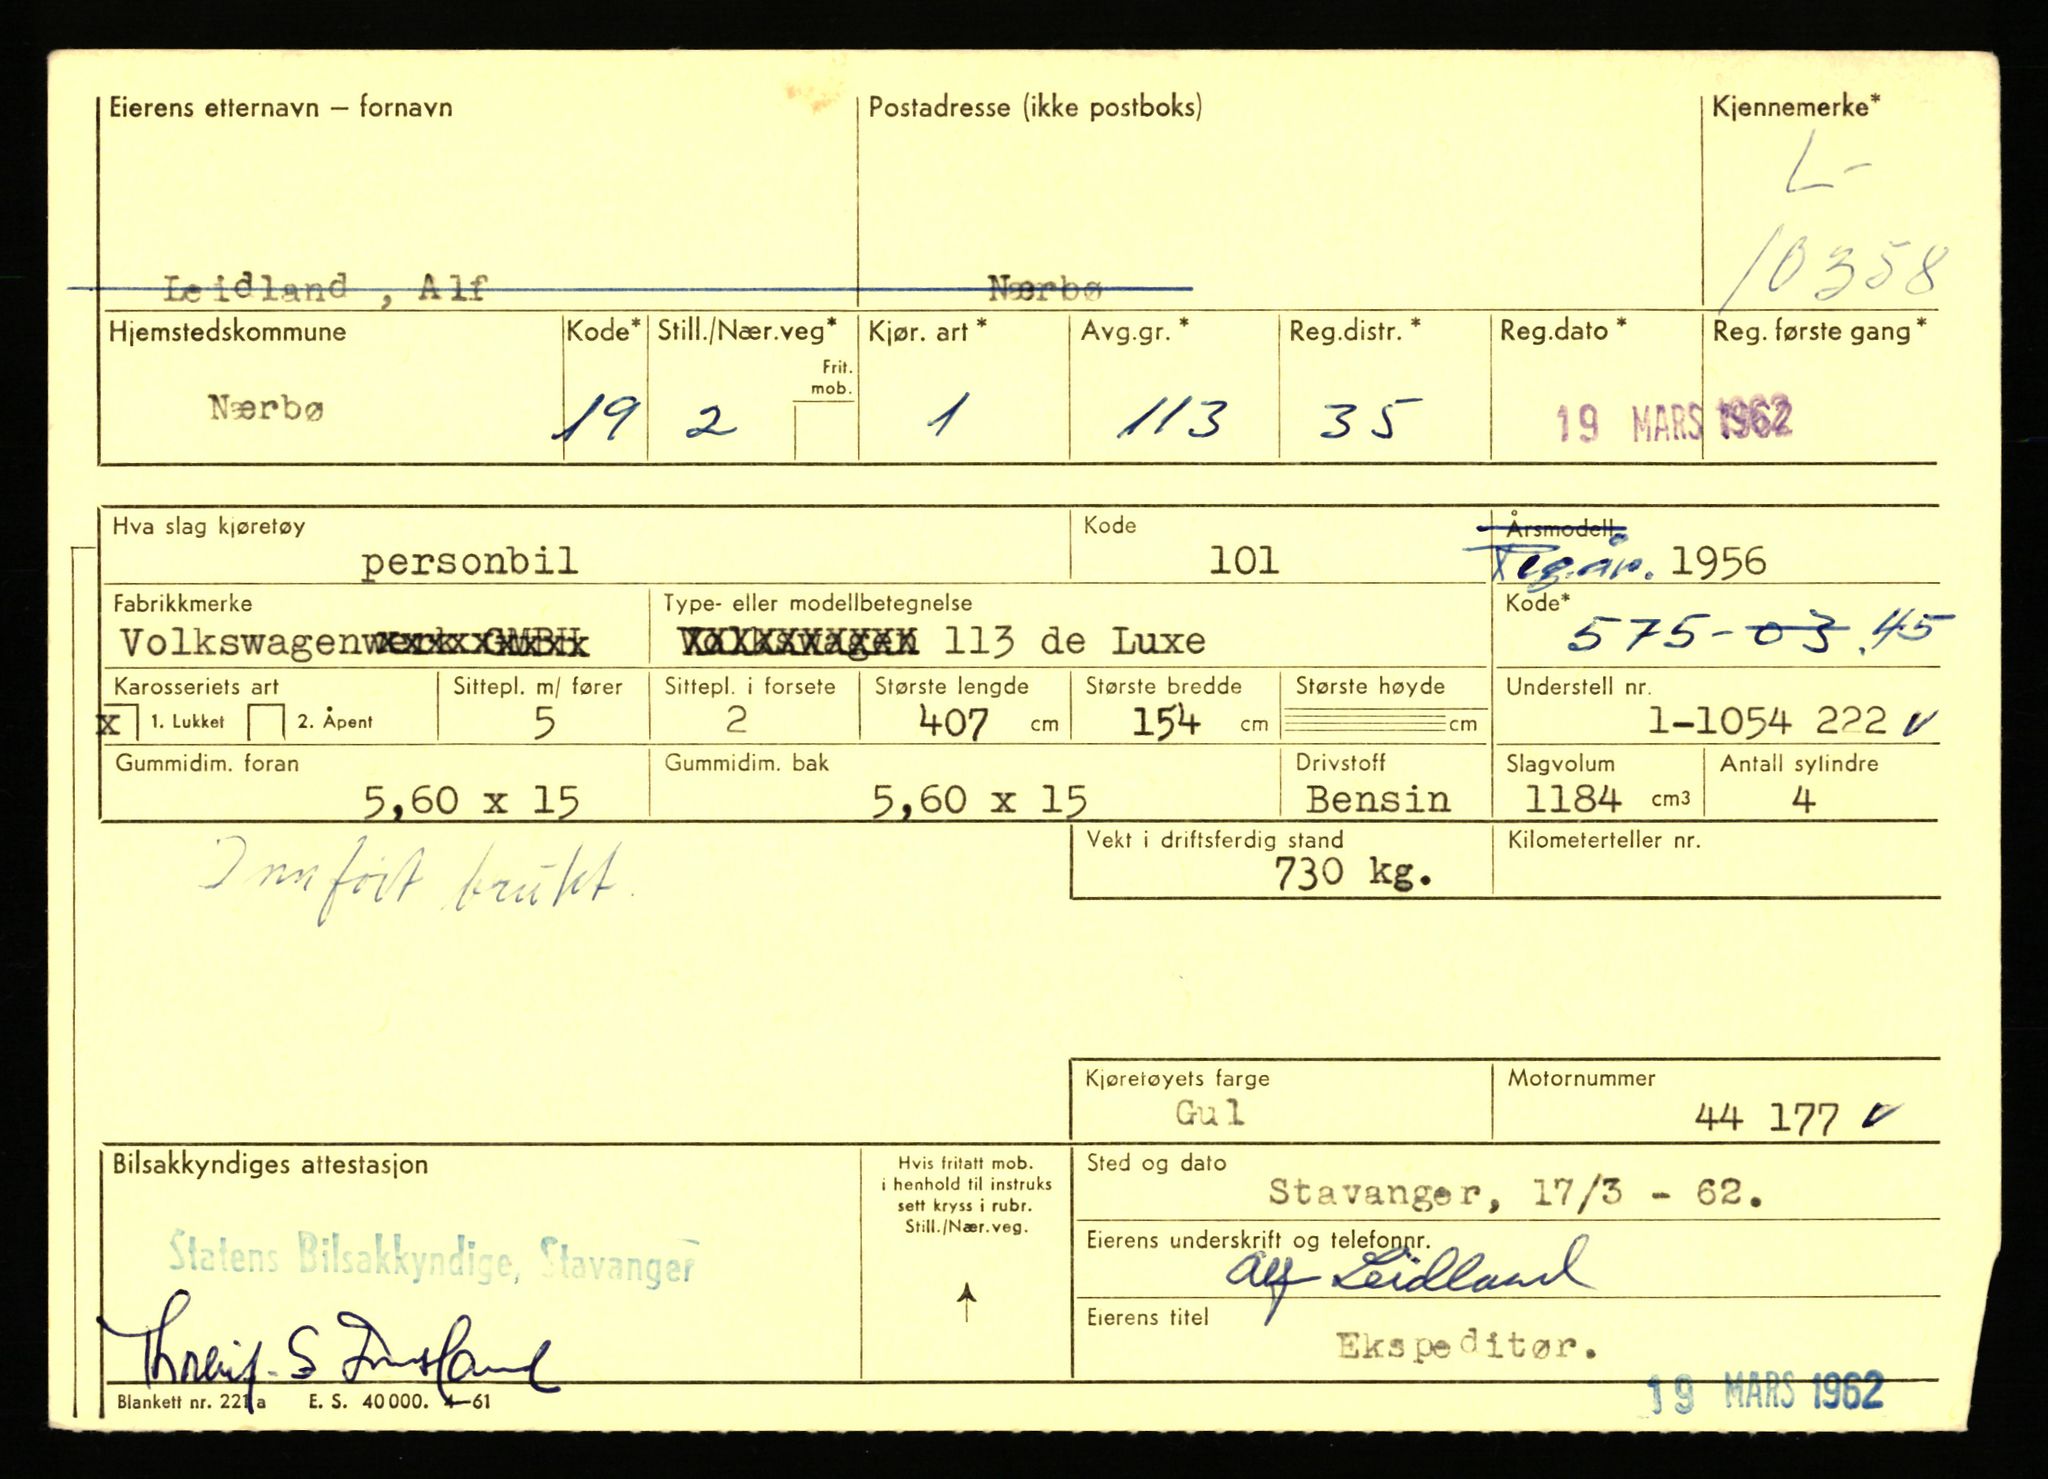 Eierens etternavn – fornavn Postadresse (ikke postboks) Kjennemerke*
L-
10358
Leidland, Alf Nærbø
Hjemstedskommune Kode* Still./Nær.veg* Kjør. art* Avg.gr.* Reg.distr.* Reg.dato* Reg. første gang*
Frit.
mob.
Nærbø 19 2 1 113 35 19 MARS 1962
Hva slag kjøretøy Kode Årsmodell
personbil 101 Reg.år. 1956
Fabrikkmerke Type- eller modellbetegnelse Kode*
Volkswagenwerk GMBH Volkswagen 113 de Luxe 575-03.45
Karosseriets art Sittepl. m/ fører Sittepl. i forsete Største lengde Største bredde Største høyde Understell nr.
x 1. Lukket 2. Åpent 5 2 407 cm 154 cm cm 1-1054 222
Gummidim. foran Gummidim. bak Drivstoff Slagvolum Antall sylindre
5,60 x 15 5,60 x 15 Bensin 1184 cm3 4
Vekt i driftsferdig stand Kilometerteller nr.
730 kg.
Innført brukt.
Kjøretøyets farge Motornummer
Gul 44 177
Bilsakkyndiges attestasjon Hvis fritatt mob.
i henhold til instruks
sett kryss i rubr.
Still./Nær.veg.
Sted og dato
Stavanger, 17/3 - 62.
Statens Bilsakkyndige, Stavanger
Eierens underskrift og telefonnr.
Alf Leidland
Eierens titel
Ekspeditør.
19 MARS 1962
Blankett nr. 221 a E. S. 40 000. 4-61